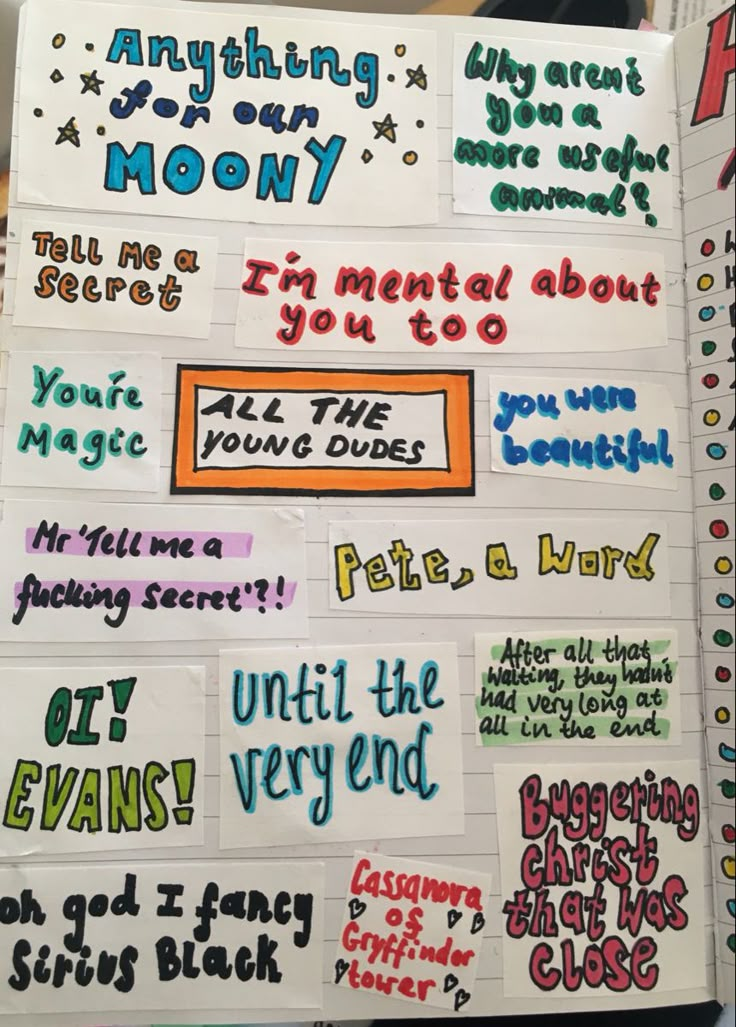 Anything
for our
MOONY
Why aren't
you a
more useful
animal?
Tell me a
secret
I'm mental about
you too
You're
Magic
ALL THE
YOUNG DUDES
you were
beautiful
Mr 'Tell me a
fucking secret'?!
Pete, a word
OI!
EVANS!
until the
very end
After all that
waiting, they hadn't
had very long at
all in the end
oh god I fancy
Sirius Black
Cassanova
of
Gryffindor
tower
Buggering
christ
that was
close